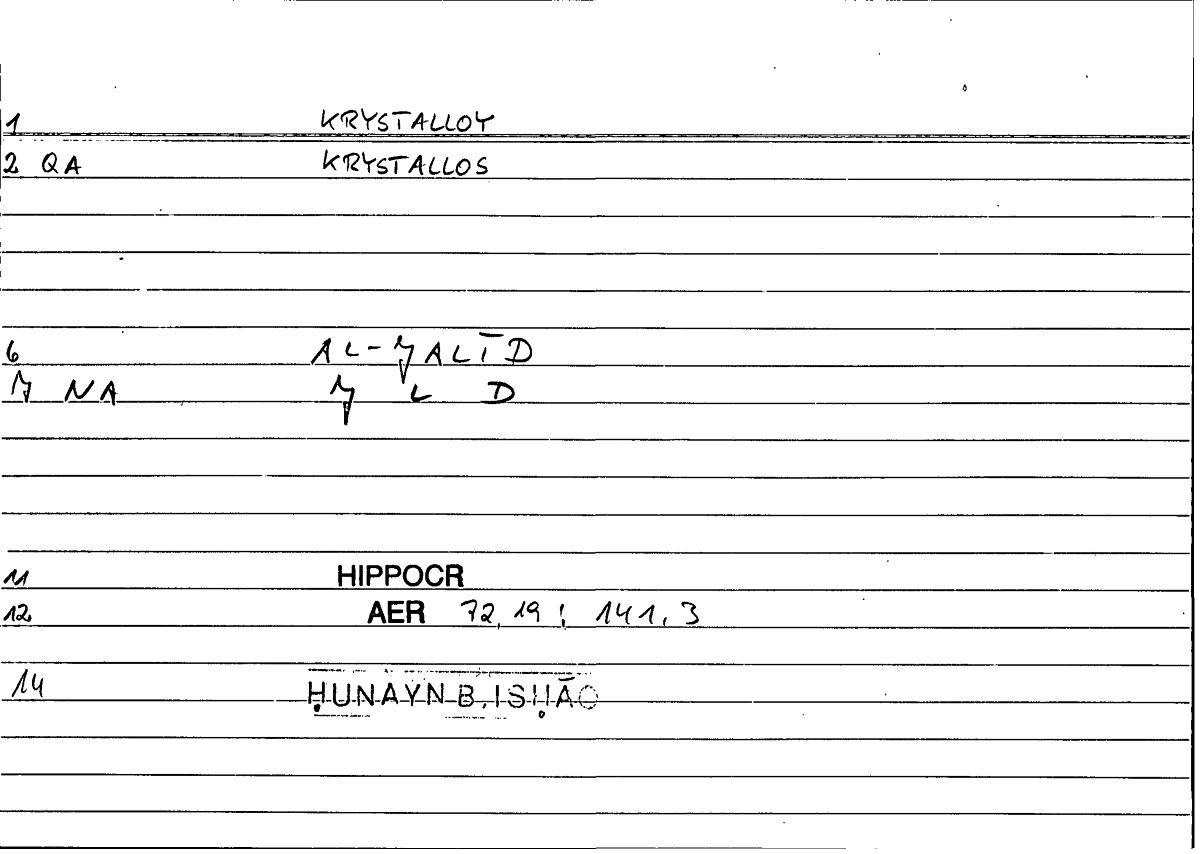 1 KRYSTALLOY
2 QA KRYSTALLOS
6 AL-ǦALĪD
7 NA Ǧ L D
11 HIPPOCR
12 AER 72,19; 141,3
14 ḤUNAYN B. ISḤĀQ